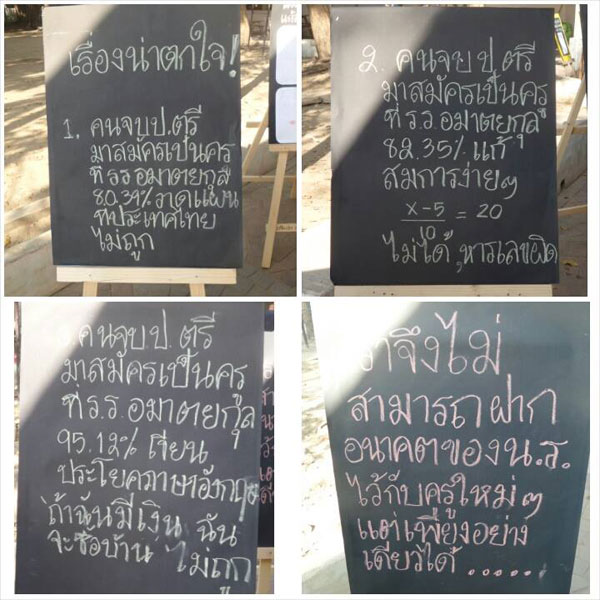 เรื่องน่าตกใจ!
1. คนจบป.ตรี
มาสมัครเป็นครู
ที่ ร.ร อมาตยกุล
80.39% วาดแผน
ที่ประเทศไทย
ไม่ถูก
2. คนจบ ป.ตรี
มาสมัครเป็นครู
ที่ ร.ร. อมาตยกุล
82.35% แก้
สมการง่ายๆ
x-5/10 = 20
ไม่ได้, หารเลขผิด
คนจบ ป.ตรี
มาสมัครเป็นครู
ที่ ร.ร. อมาตยกุล
95.12% เขียน
ประโยคภาษาอังกฤษ
"ถ้าฉันมีเงิน ฉัน
จะซื้อบ้าน" ไม่ถูก
จึงไม่
สามารถฝาก
อนาคตของ น.ร.
ไว้กับครูใหม่ๆ
แต่เพียงอย่าง
เดียวได้ ......